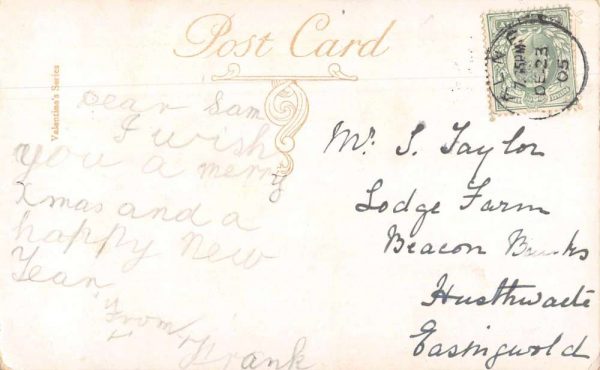 Post Card
Valentine's Series
5 PM
DE 23
05
Dear Sam
I wish
you a merry
Xmas and a
happy New
Year
From
Frank
Mr. S. Taylor
Lodge Farm
Beacon Banks
Husthwaite
Easingwold